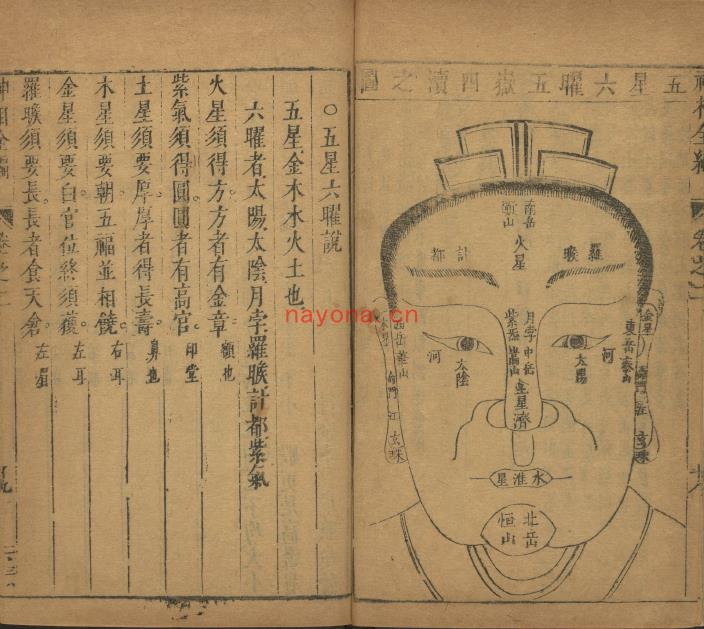 五星六曜五嶽四瀆之圖
南岳
衡山
火星
羅㬋
計都
月孛
紫炁
中岳
嵩山
土星
濟
太陽
河
太陰
河
金星
東岳泰山
玄珠
西岳華山
江
玄珠
水淮星
北岳
恒山
○五星六曜說
五星金木水火土也
六曜者太陽太陰月孛羅㬋計都紫氣
火星須得方方者有金章 額也
紫氣須得圓圓者有高官 印堂
土星須要厚厚者得長壽 鼻也
木星須要朝五福並相饒 右耳
金星須要白官位終須獲 左耳
羅㬋須要長長者食天倉 左眉
nayona.cn